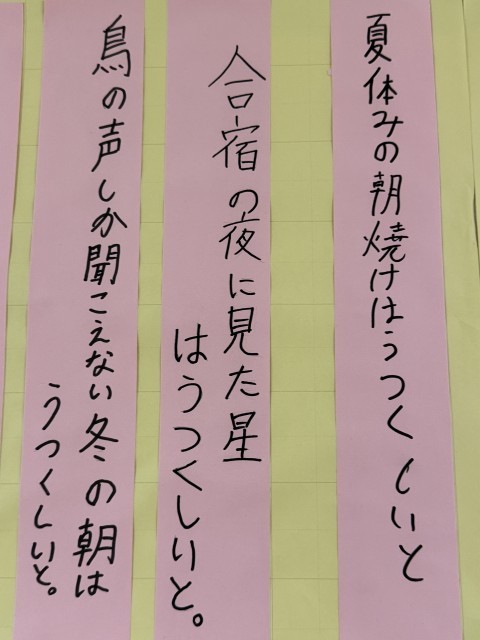 夏休みの朝焼けはうつくしいと
合宿の夜に見た星
はうつくしいと。
鳥の声しか聞こえない冬の朝は
うつくしいと。